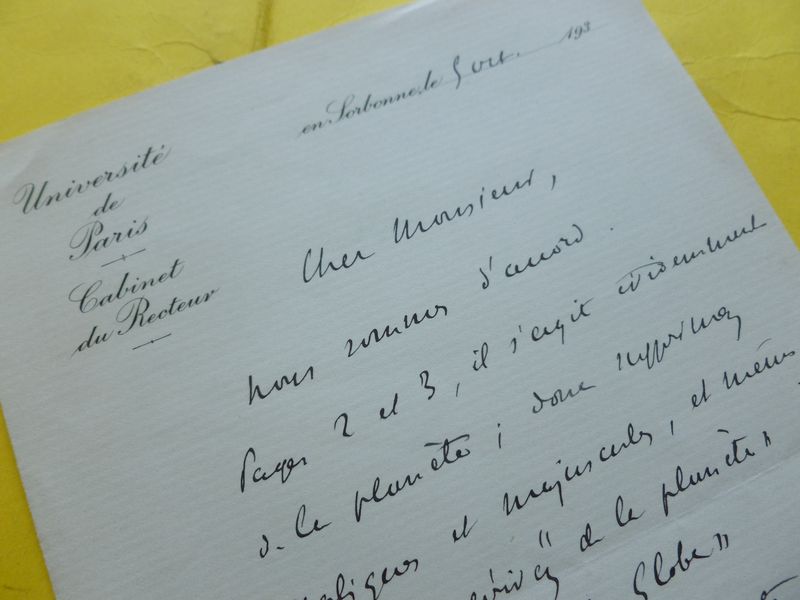 Université
de
Paris
Cabinet
du Recteur
en Sorbonne, le 5 oct. 193
Cher Monsieur,
nous sommes d'accord.
Pages 2 et 3, il s'agit évidemment
de la planète ; donc supprimez
italiques et majuscules, et même
"de la planète"
Globe"